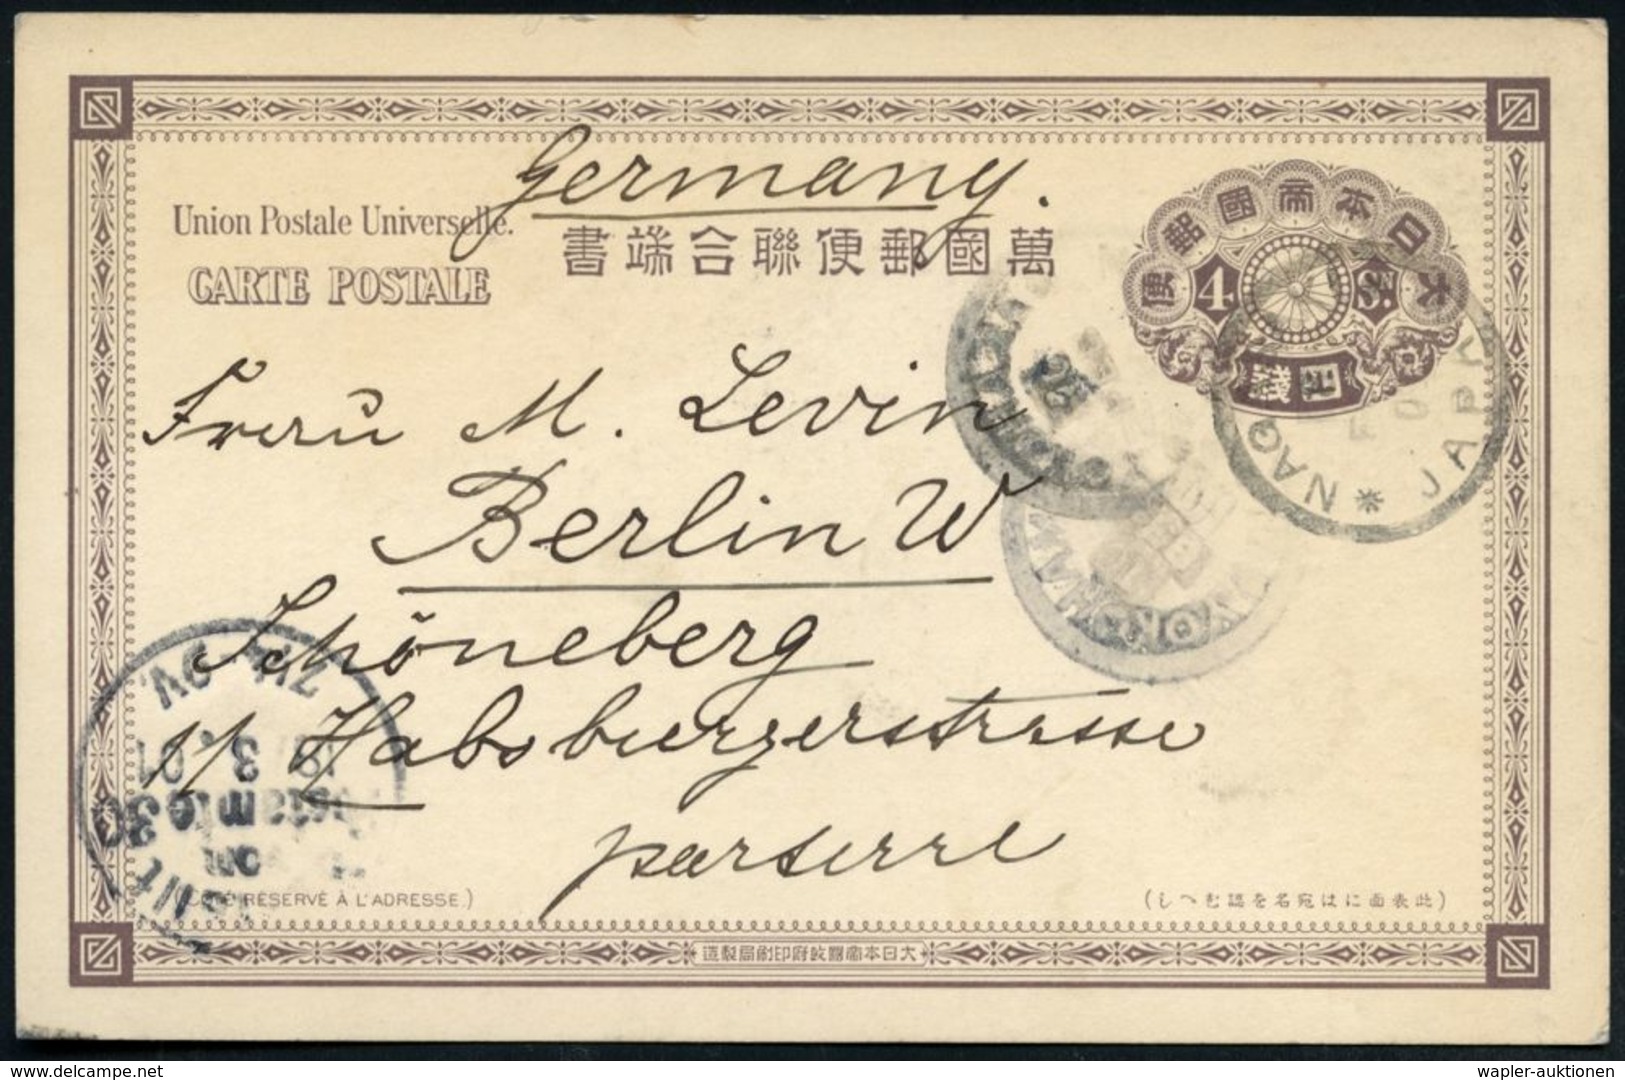 Germany.
Union Postale Universelle.
CARTE POSTALE
書端合聯便郵國萬
便郵國帝本日大
4 SN.
錢四
YOKOHAMA
NAG
JAPAN
Frau M. Levin
Berlin W
Schöneberg
11 Habsburgerstrasse
parterre
7¼ - 9V.
3.01
Bestellt
vom
Postamte 30
(CÔTÉ RÉSERVÉ À L'ADRESSE.)
(しへむ認を名宛はに面表此)
造製局刷印府政國帝本日大
www.delcampe.net
wapler-auktionen